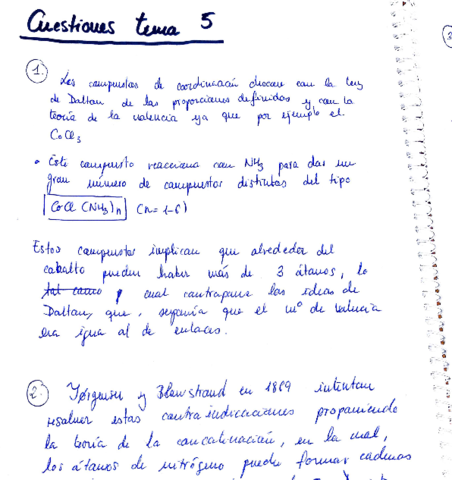 Cuestiones tema 5
1. Los compuestos de coordinación chocan con la ley
de Dalton de las proporciones definidas y con la
teoría de la valencia ya que por ejemplo el
CoCl3
• Este compuesto reacciona con NH3 para dar un
gran número de compuestos distintos del tipo
CoCl (NH3)n (n=1-6)
Estos compuestos implican que alrededor del
cobalto pueden haber más de 3 átomos, lo
cual contrapone las ideas de
Dalton, que, suponía que el nº de valencia
era igual al de enlaces.
2. Jørgensen y Blomstrand en 1869 intentan
resolver estas contraindicaciones proponiendo
la teoría de la concatenación, en la cual,
los átomos de nitrógeno puede formar cadenas